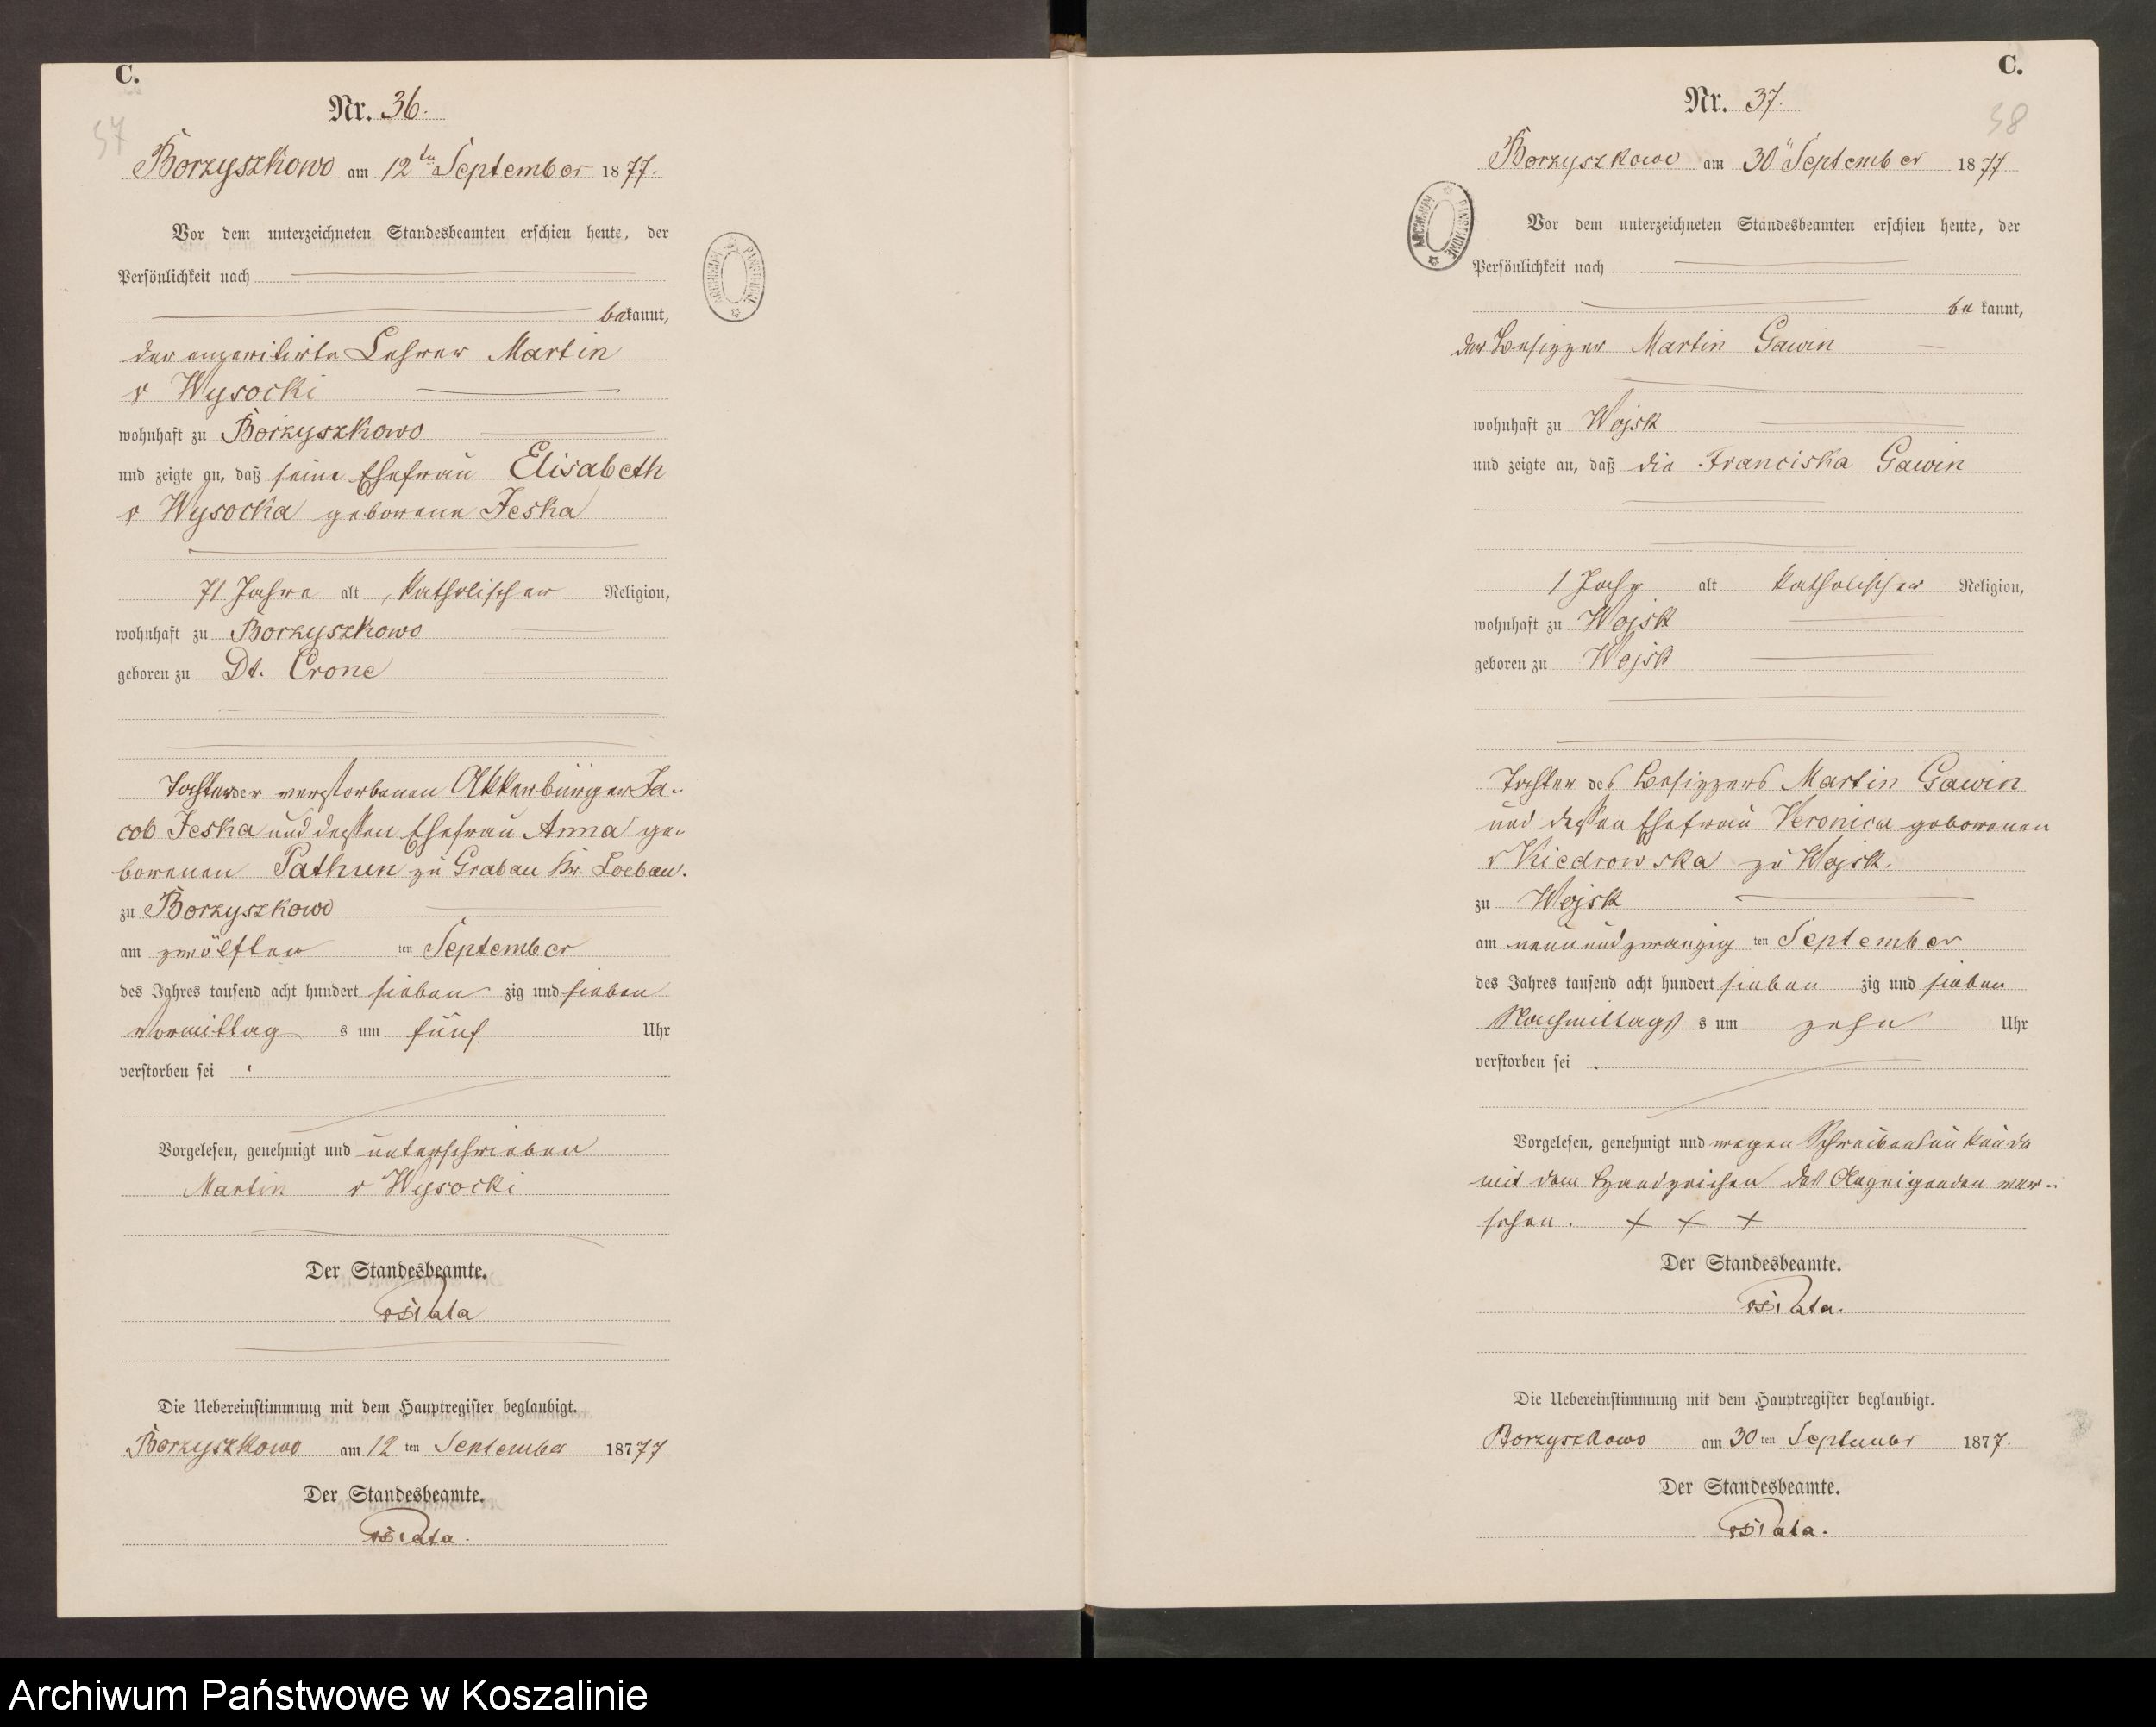 C.
57
Nr. 36.
Borzyszkowo am 12ten September 1877.
Vor dem unterzeichneten Standesbeamten erschien heute, der
Persönlichkeit nach
bekannt,
der emeritirte Lehrer Martin
v Wysocki
wohnhaft zu Borzyszkowo
und zeigte an, daß seine Ehefrau Elisabeth
v Wysocka geborene Jeska
71 Jahre alt, katholischer Religion,
wohnhaft zu Borzyszkowo
geboren zu Dt. Crone
Tochter der verstorbenen Akkerbürger Ja-
cob Jeska und dessen Ehefrau Anna ge-
borenen Pathun zu Grabau Kr. Loebau.
zu Borzyszkowo
am zwölften ten September
des Jahres tausend acht hundert sieben zig und sieben
Vormittag s um fünf Uhr
verstorben sei
Vorgelesen, genehmigt und unterschrieben
Martin v Wysocki
Der Standesbeamte.
Die Uebereinstimmung mit dem Hauptregister beglaubigt.
Borzyszkowo am 12 ten September 1877
Der Standesbeamte.
ARCHIWUM PAŃSTWOWE
C.
58
Nr. 37.
Borzyszkowo am 30" September 1877
Vor dem unterzeichneten Standesbeamten erschien heute, der
Persönlichkeit nach
be kannt,
der Besizzer Martin Gawin
wohnhaft zu Wojsk
und zeigte an, daß die Franciska Gawin
1 Jahr alt katholischer Religion,
wohnhaft zu Wojsk
geboren zu Wojsk
Tochter des Besizzers Martin Gawin
und dessen Ehefrau Veronica geborenen
v Kiedrowska zu Wojsk.
zu Wojsk
am neun und zwanzig ten September
des Jahres tausend acht hundert sieben zig und sieben
Nachmittags s um zehn Uhr
verstorben sei .
Vorgelesen, genehmigt und wegen Schreibensunkunde
mit dem Handzeichen des Anzeigenden ver-
sehen. + + +
Der Standesbeamte.
Die Uebereinstimmung mit dem Hauptregister beglaubigt.
Borzyszkowo am 30 ten September 1877.
Der Standesbeamte.
ARCHIWUM PAŃSTWOWE
Archiwum Państwowe w Koszalinie